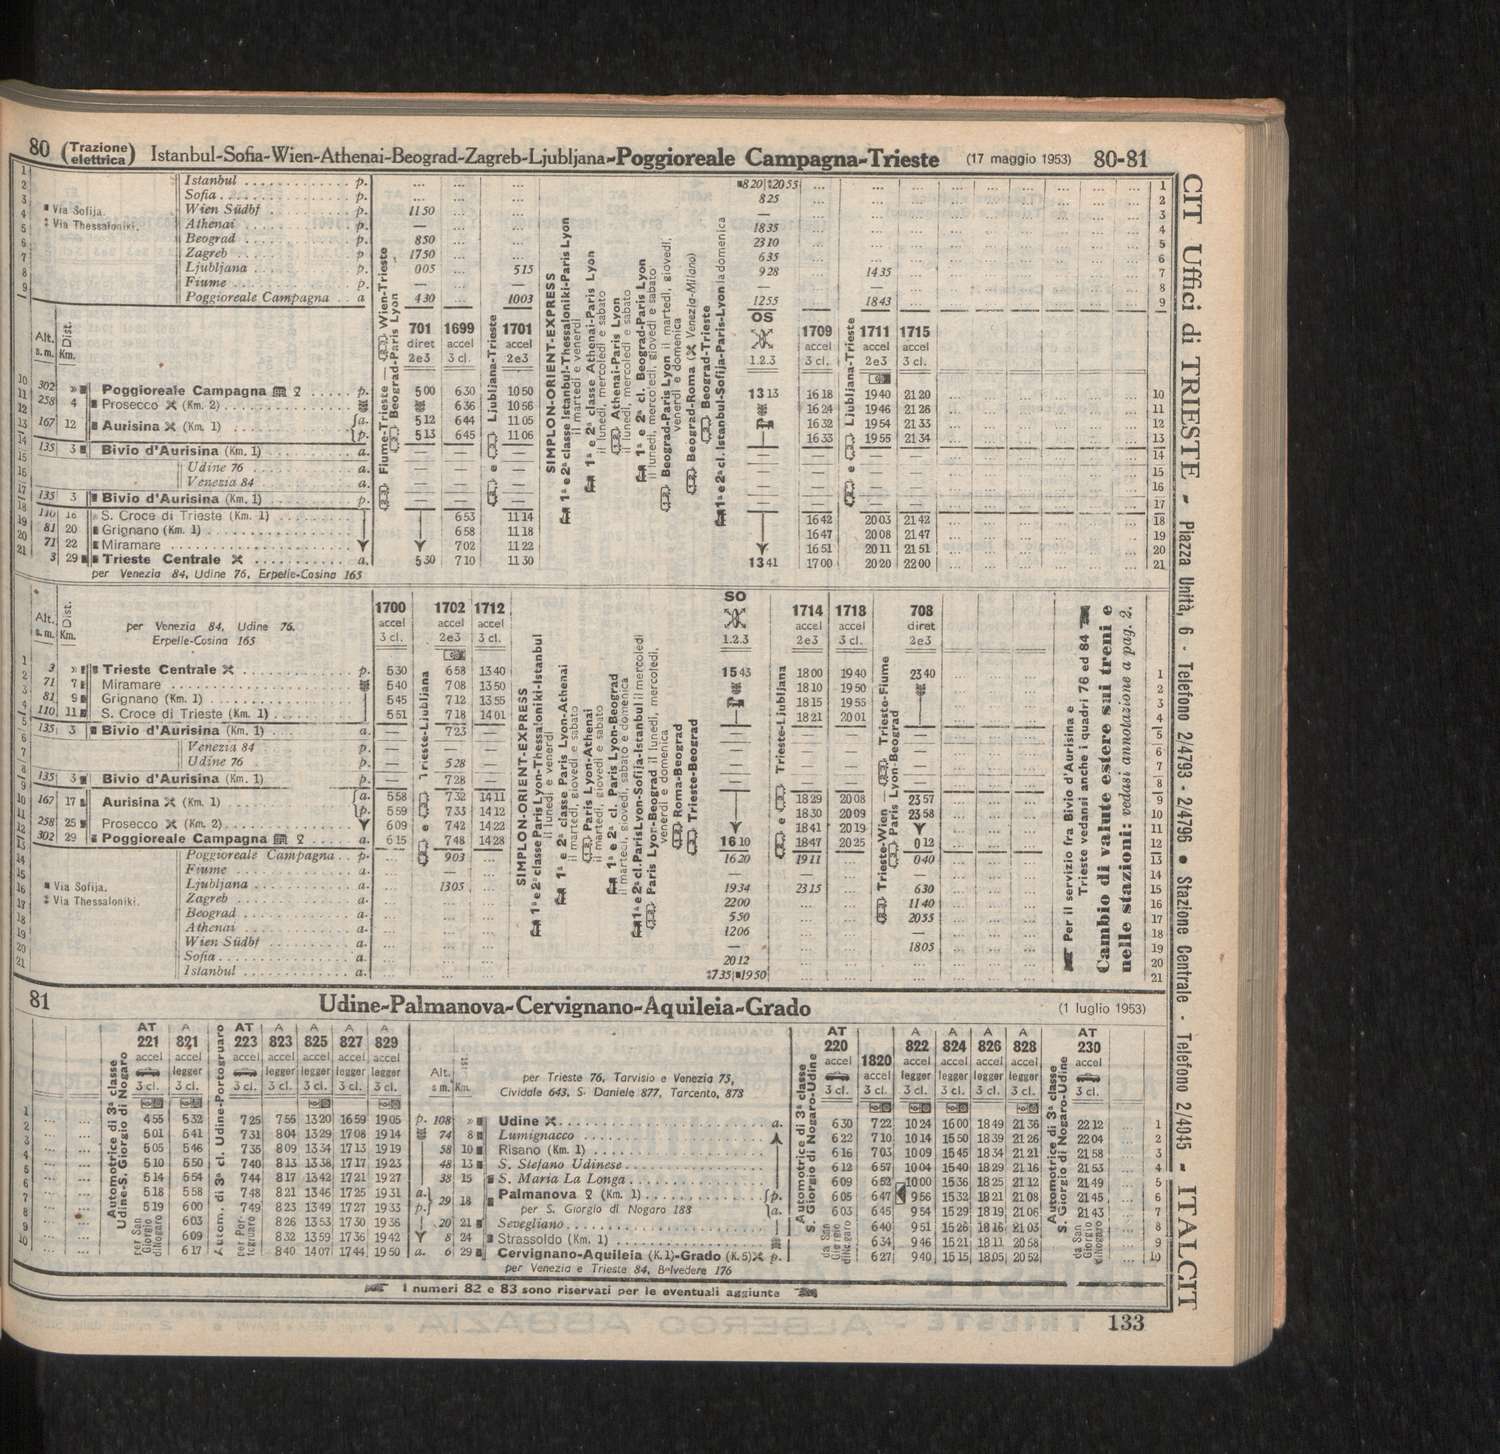 80 (Trazione elettrica) Istanbul-Sofia-Wien-Athenai-Beograd-Zagreb-Ljubljana-Poggioreale Campagna-Trieste (17 maggio 1953) 80-81
1 Istanbul p. ... ... ... ■820|‡2055 ... ... ... 1
2 Sofia p. ... ... ... 825 ... ... ... 2
3 ■ Via Sofija. Wien Südbf p. 1150 ... ... — ... ... ... 3
4 ‡ Via Thessaloniki. Athenai p. — ... ... 1835 ... ... ... 4
5 Beograd p. 850 ... ... 2310 ... ... ... 5
6 Zagreb p 1750 ... ... 635 ... ... ... 6
7 Ljubljana p. 005 ... 515 928 ... 1435 ... 7
8 Fiume p. — ... — — ... — ... 8
9 Poggioreale Campagna a 430 ... 1003 1255 ... 1843 ... 9
Alt. s.m. Dist. Km. 701 1699 1701 OS 1709 1711 1715
diret accel accel accel accel accel
2e3 3 cl. 2e3 1.2.3 3 cl. 2e3 3 cl.
Fiume-Trieste — Wien-Trieste
Beograd-Paris Lyon
Ljubljana-Trieste e
SIMPLON-ORIENT-EXPRESS
1ª e 2ª classe Istanbul-Thessaloniki-Paris Lyon
il martedì e venerdì
1ª e 2ª classe Athenai-Paris Lyon
il lunedì, mercoledì e sabato
Athenai-Paris Lyon
il lunedì, mercoledì e sabato
1ª e 2ª cl. Beograd-Paris Lyon
il lunedì, mercoledì, giovedì e sabato
Beograd-Paris Lyon il martedì, giovedì,
venerdì e domenica
Beograd-Roma (Venezia-Milano)
Beograd-Trieste
1ª e 2ª cl. Istanbul-Sofija-Paris-Lyon la domenica
e Ljubljana-Trieste
10 302 » Poggioreale Campagna p. 500 630 1050 1313 1618 1940 2120 10
11 258 4 Prosecco (Km. 2) 636 1056 1624 1946 2126 11
12 167 12 Aurisina (Km. 1) a. 512 644 1105 1632 1954 2133 12
13 p. 513 645 1106 1633 1955 2134 13
14 135 3 Bivio d'Aurisina (Km. 1) a. — — — — — — — 14
15 Udine 76 a. — — — — — — — 15
16 Venezia 84 a. — — — — — — — 16
17 135 3 Bivio d'Aurisina (Km. 1) p. — — — — — — — 17
18 110 16 S. Croce di Trieste (Km. 1) 653 1114 1642 2003 2142 18
19 81 20 Grignano (Km. 1) 658 1118 1647 2008 2147 19
20 71 22 Miramare 702 1122 1651 2011 2151 20
21 3 29 Trieste Centrale a. 530 710 1130 1341 1700 2020 2200 21
per Venezia 84, Udine 76, Erpelle-Cosina 165
Alt. s.m. Dist. Km. per Venezia 84, Udine 76, Erpelle-Cosina 165
1700 1702 1712 SO 1714 1718 708
accel accel accel accel accel diret
3 cl. 2e3 3 cl. 1.2.3 2e3 3 cl. 2e3
Trieste-Ljubljana e
SIMPLON-ORIENT-EXPRESS
1ª e 2ª classe Paris Lyon-Thessaloniki-Istanbul
il lunedì e venerdì
1ª e 2ª classe Paris Lyon-Athenai
il martedì, giovedì e sabato
Paris Lyon-Athenai
il martedì, giovedì e sabato
1ª e 2ª cl. Paris Lyon-Beograd
il martedì, giovedì, sabato e domenica
1ª e 2ª cl. Paris Lyon-Sofija-Istanbul il mercoledì
Paris Lyon-Beograd il lunedì, mercoledì,
venerdì e domenica
Roma-Beograd
Trieste-Beograd
e Trieste-Ljubljana
Trieste-Wien — Trieste-Fiume
Paris Lyon-Beograd
Per il servizio fra Bivio d'Aurisina e
Trieste vedansi anche i quadri 76 ed 84
Cambio di valute estere sui treni e
nelle stazioni: vedasi annotazione a pag. 2.
1 3 » Trieste Centrale p. 530 658 1340 1543 1800 1940 2340 1
2 71 7 Miramare 540 708 1350 1810 1950 2
3 81 9 Grignano (Km. 1) 545 712 1355 1815 1955 3
4 110 11 S. Croce di Trieste (Km. 1) 551 718 1401 1821 2001 4
5 135 3 Bivio d'Aurisina (Km. 1) a. — 723 — — — — — 5
6 Venezia 84 p. — — — — — — — 6
7 Udine 76 p. — 528 — — — — — 7
8 135 3 Bivio d'Aurisina (Km. 1) p. — 728 — — — — — 8
9 167 17 Aurisina (Km. 1) a. 558 732 1411 1829 2008 2357 9
10 p. 559 733 1412 1830 2009 2358 10
11 258 25 Prosecco (Km. 2) 609 742 1422 1841 2019 11
12 302 29 Poggioreale Campagna a. 615 748 1428 1610 1847 2025 012 12
13 Poggioreale Campagna p. ... 903 ... 1620 1911 ... 040 13
14 Fiume a. ... — ... — — ... — 14
15 ■ Via Sofija. Ljubljana a. ... 1305 ... 1934 2315 ... 630 15
16 ‡ Via Thessaloniki. Zagreb a. ... ... ... 2200 ... ... 1140 16
17 Beograd a. ... ... ... 550 ... ... 2055 17
18 Athenai a. ... ... ... 1206 ... ... — 18
19 Wien Südbf a. ... ... ... — ... ... 1805 19
20 Sofia a. ... ... ... 2012 ... ... ... 20
21 Istanbul a. ... ... ... ‡735|■1950 ... ... ... 21
81 Udine-Palmanova-Cervignano-Aquileia-Grado (1 luglio 1953)
AT A AT A A A A AT A A A A AT
221 821 223 823 825 827 829 220 1820 822 824 826 828 230
accel accel accel accel accel accel accel accel accel accel accel accel accel accel
legger legger legger legger legger legger legger legger legger
3 cl. 3 cl. 3 cl. 3 cl. 3 cl. 3 cl. 3 cl. 3 cl. 3 cl. 3 cl. 3 cl. 3 cl. 3 cl. 3 cl.
Alt. s.m. Km. per Trieste 76, Tarvisio e Venezia 75,
Cividale 643, S. Daniele 877, Tarcento, 873
Automotrice di 3ª classe
Udine-S. Giorgio di Nogaro
Autom. di 3ª cl. Udine-Portogruaro
Automotrice di 3ª classe
S. Giorgio di Nogaro-Udine
Automotrice di 3ª classe
S. Giorgio di Nogaro-Udine
1 455 532 725 755 1320 1659 1905 p. 108 » Udine a. 630 722 1024 1600 1849 2136 2212 1
2 501 541 731 804 1329 1708 1914 74 8 Lumignacco 622 710 1014 1550 1839 2126 2204 2
3 505 546 735 809 1334 1713 1919 58 10 Risano (Km. 1) 616 703 1009 1545 1834 2121 2158 3
4 510 550 740 813 1338 1717 1923 48 13 S. Stefano Udinese 612 657 1004 1540 1829 2116 2153 4
5 514 554 744 817 1342 1721 1927 38 15 S. Maria La Longa 609 652 1000 1536 1825 2112 2149 5
6 518 558 748 821 1346 1725 1931 a. 29 18 Palmanova (Km. 1) p. 605 647 956 1532 1821 2108 2145 6
7 519 600 749 823 1349 1727 1933 p. per S. Giorgio di Nogaro 188 a. 603 645 954 1529 1819 2106 2143 7
8 per San Giorgio di Nogaro 603 per Portogruaro 826 1353 1730 1936 20 21 Sevegliano da San Giorgio di Nogaro 640 951 1526 1816 2103 da San Giorgio di Nogaro 8
9 609 832 1359 1736 1942 8 24 Strassoldo (Km. 1) 634 946 1521 1811 2058 9
10 617 840 1407 1744 1950 a. 6 29 Cervignano-Aquileia (K.1)-Grado (K.5) p. 627 940 1515 1805 2052 10
per Venezia e Trieste 84, Belvedere 176
I numeri 82 e 83 sono riservati per le eventuali aggiunte
133
CIT Uffici di TRIESTE - Piazza Unità, 6 - Telefono 2/4793 - 2/4796 ● Stazione Centrale - Telefono 2/4045 - ITALCIT